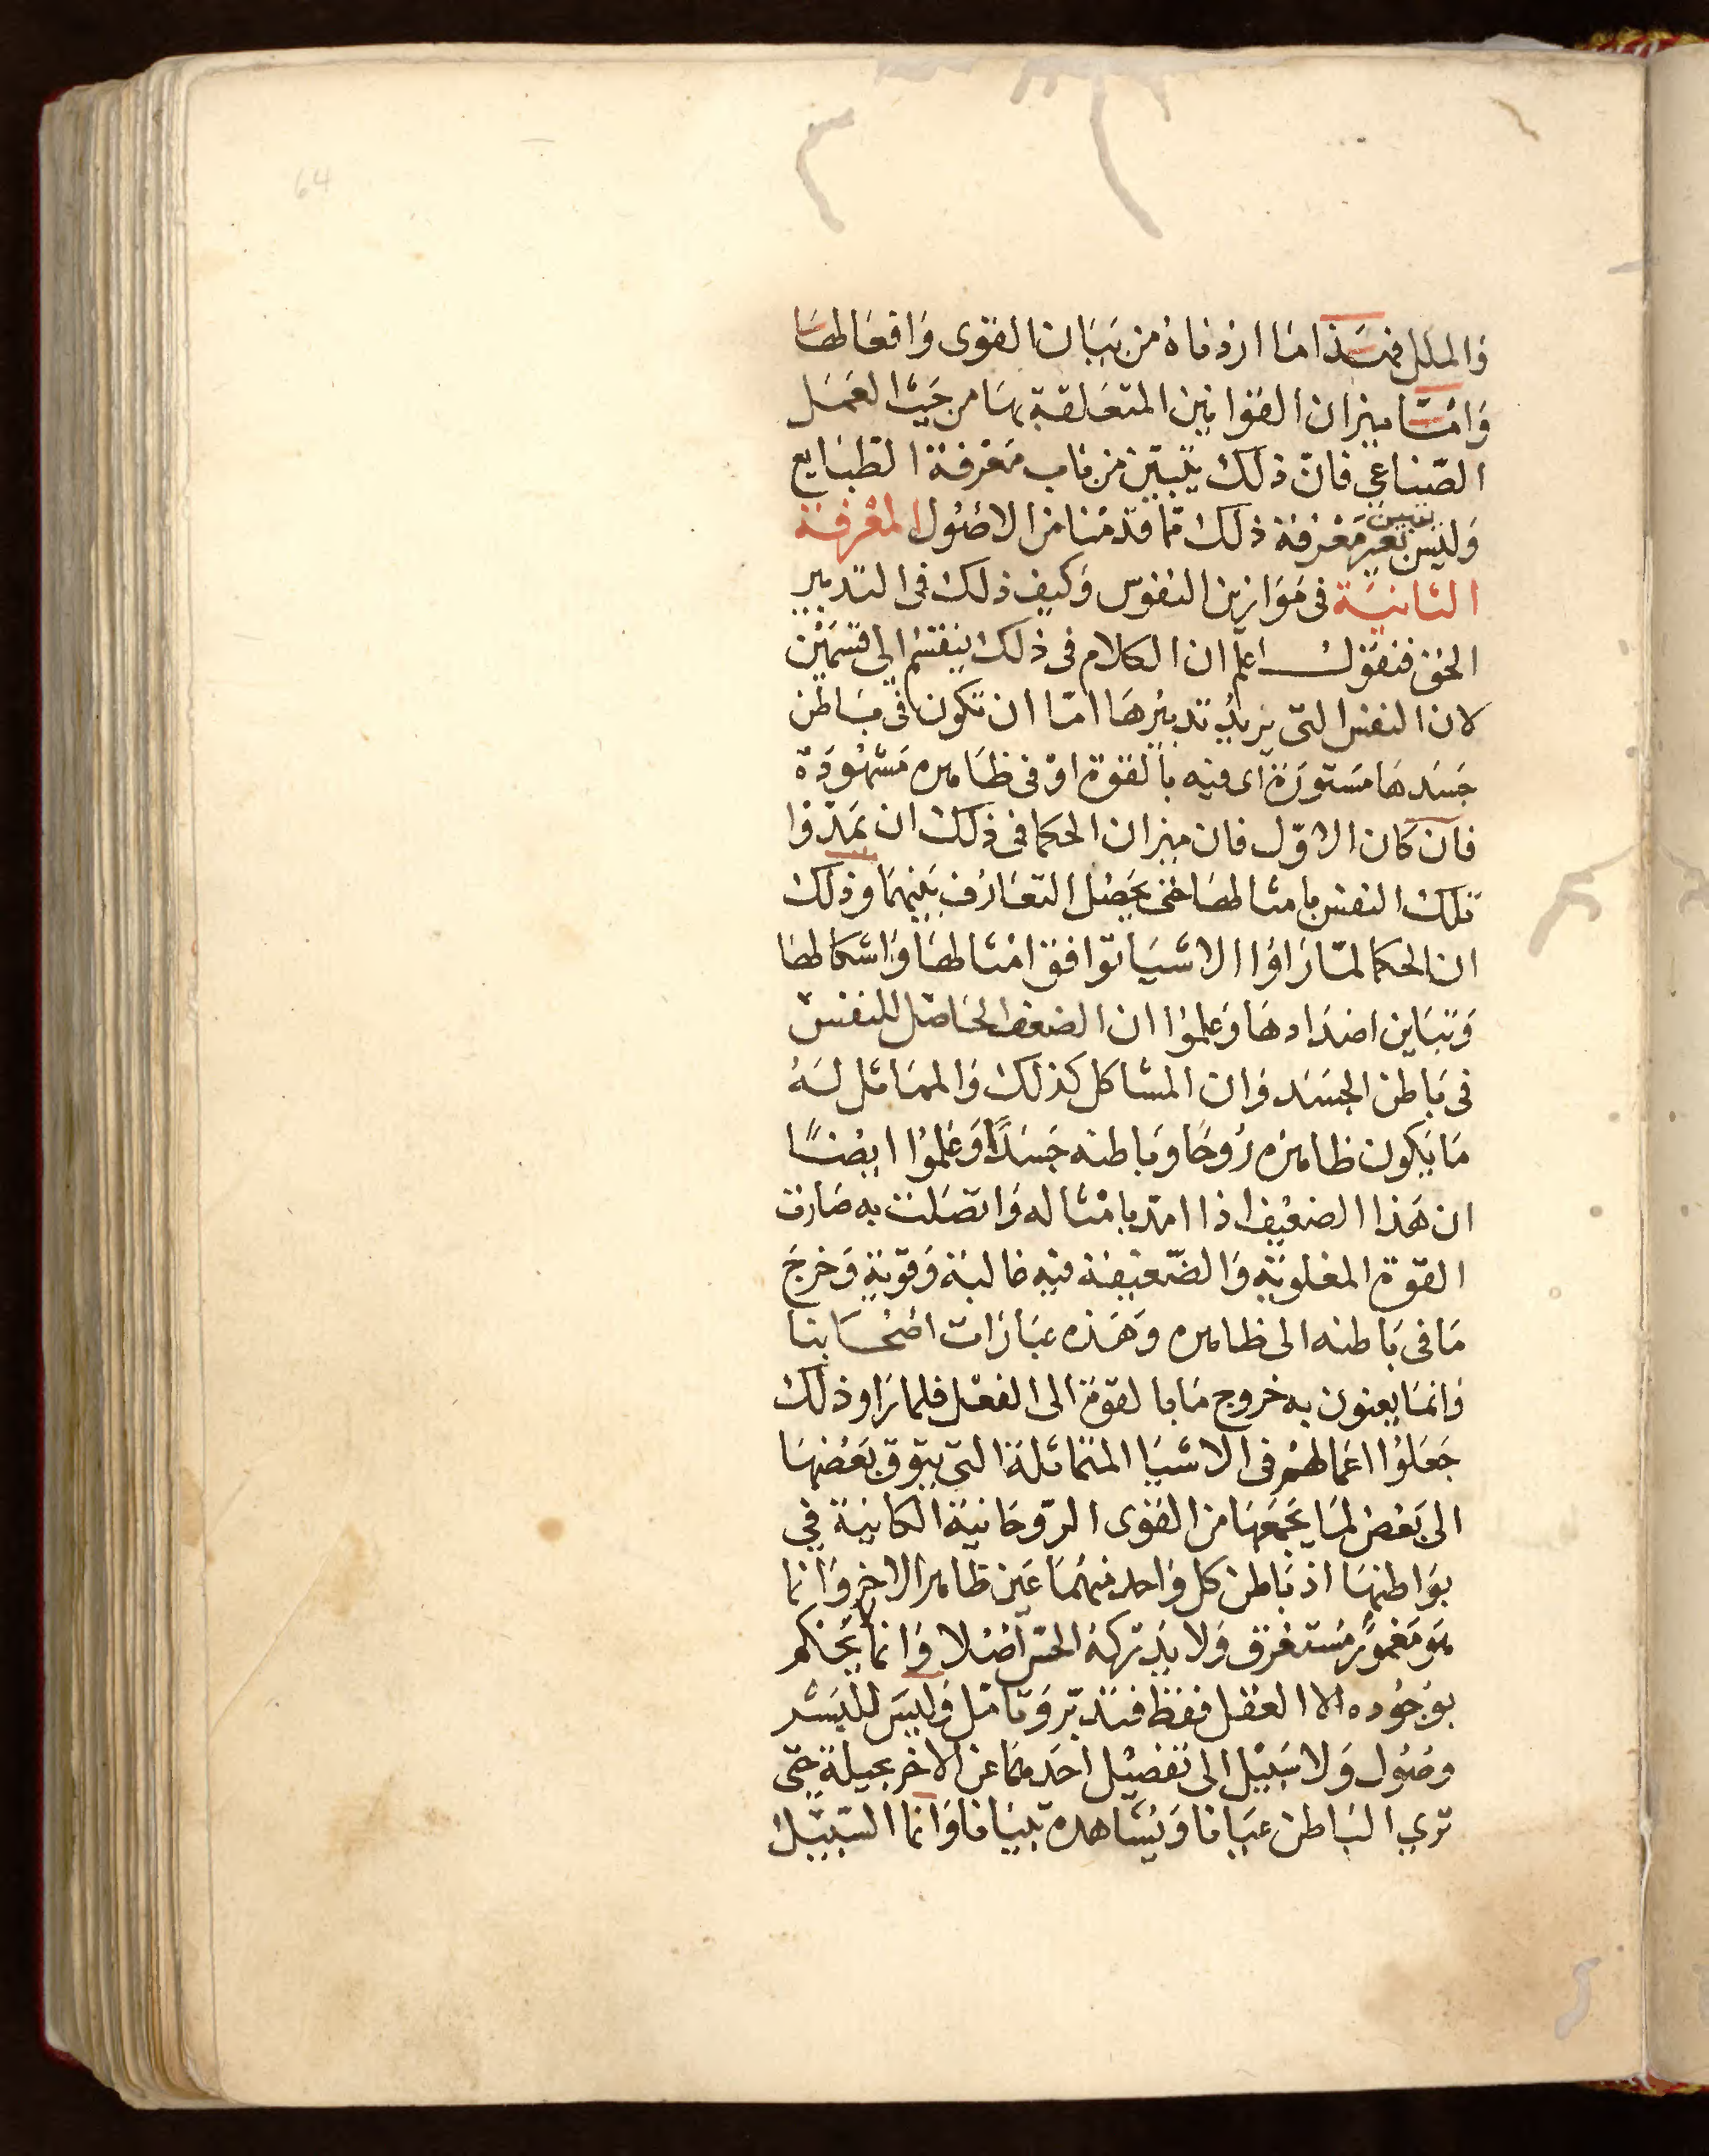 64
والملل فهذا ما اردناه من بيان القوى وافعالها
وامّا ميزان القوانين المتعلقة بها من حيث العمل
الصّناعي فانّ ذلك يتبيّن من باب معرفة الطبايع
وليس بعير معرفة ذلك ممّا قدّمنا من الاصول المعرفة
تبيين
الثانية في موازين النفوس وكيف ذلك في التدبير
الحق فنقول اعلم ان الكلام في ذلك ينقسم الى قسمين
لان النفس التي يريد تدبيرها امّا ان تكون في باطن
جسدها مستورة اى فيه بالقوة او في ظاهره مشهودة
فان كان الاوّل فان ميزان الحكما في ذلك ان يمدّوا
تلك النفس بامثالها حتى يحصل التعارف بينهما وذلك
ان الحكما لمّا راوا الاشيا توافق امثالها واشكالها
وتباين اضدادها وعلموا ان الضعف الحاصل للنفس
في باطن الجسد وان المشاكل كذلك والمماثل له
ما يكون ظاهره روحا وباطنه جسدًا وعلموا ايضًا
ان هذا الضعيف اذا امدّ بامثاله واتصلت به صارت
القوة المغلوبة والضّعيفة فيه غالبة وقوية وخرج
ما في باطنه الى ظاهره وهذه عبارات اصحابنا
وانما يعنون به خروج ما بالقوة الى الفعل فلما راو ذلك
جعلوا اعمالهم في الاشيا المتماثلة التي يتوق بعضها
الى بعض لما يجمعها من القوى الروحانية الكاينة في
بواطنها اذ باطن كل واحد منهما عين ظاهر الاخر وانما
هو مغمور مستغرق ولا يدركه الحس اصلا وانما يحكم
بوجوده الا العقل فقط فتدبّر وتامل وليس للبشر
وصول ولا سبيل الى تفصيل احدهما عن الاخر بحيلة حتى
ترى الباطن عيانا ويشاهده بيانا وانما السبيل